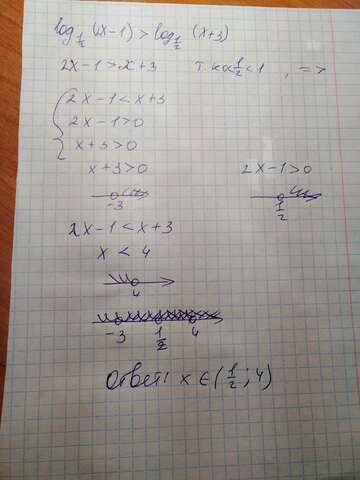 log 1/2 (2x-1) > log 1/2 (x+3)
2x-1 > x+3 т.к 0<1/2<1 , =>
{ 2x-1 < x+3
2x-1 > 0
x+3 > 0
x+3 > 0 2x-1 > 0
-3 1/2
2x-1 < x+3
x < 4
4
-3 1/2 4
Ответ: x ∈ (1/2; 4)